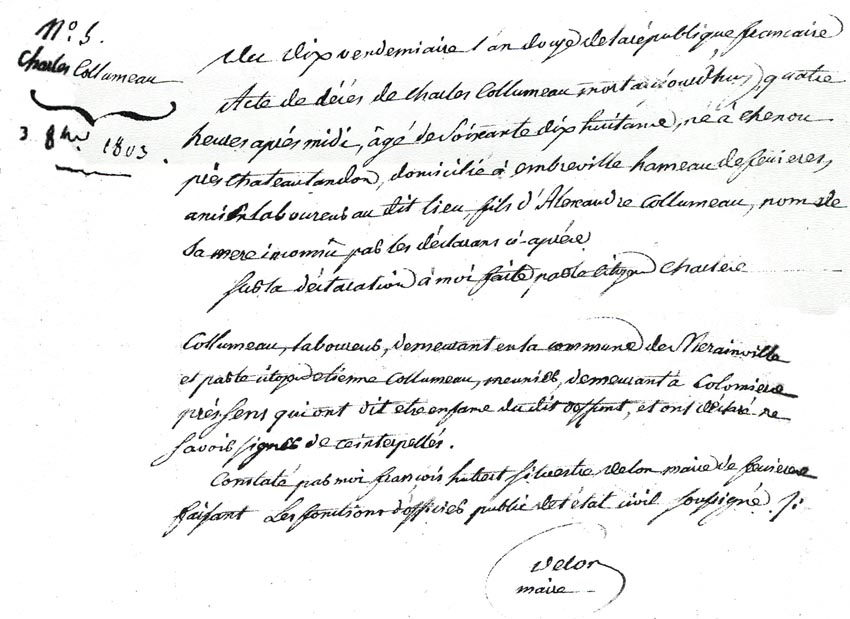 N.o 5.
Charles Collumeau
3 8bre 1803.
Du dix vendemiaire l'an douze de la république francaise
Acte de décès de charles Collumeau mort aujourd'huy, quatre
heures aprés midi, âgé de soixante dix huit ans, né à chenou
près chateaulandon, domicilié à ombreville hameau de feuieres,
ancien laboureur au dit lieu, fils d'Alexandre Collumeau, nom de
sa mere inconnu par les déclarans ci-après.
sur la déclaration à moi faite, par le citoyen Charles
Collumeau, laboureur, demeurant en la commune de Merainville
et par le citoyen etienne Collumeau, meunier, demeurant à Colomiere
près sens qui ont dit etre enfans du dit deffunt, et ont déclaré ne
savoir signer de ce interpellés.
Constaté par moi françois hubert silvestre velon maire de feuieres
faisant Les fonctions d'officier public de l'état civil soussigné
velon
maire